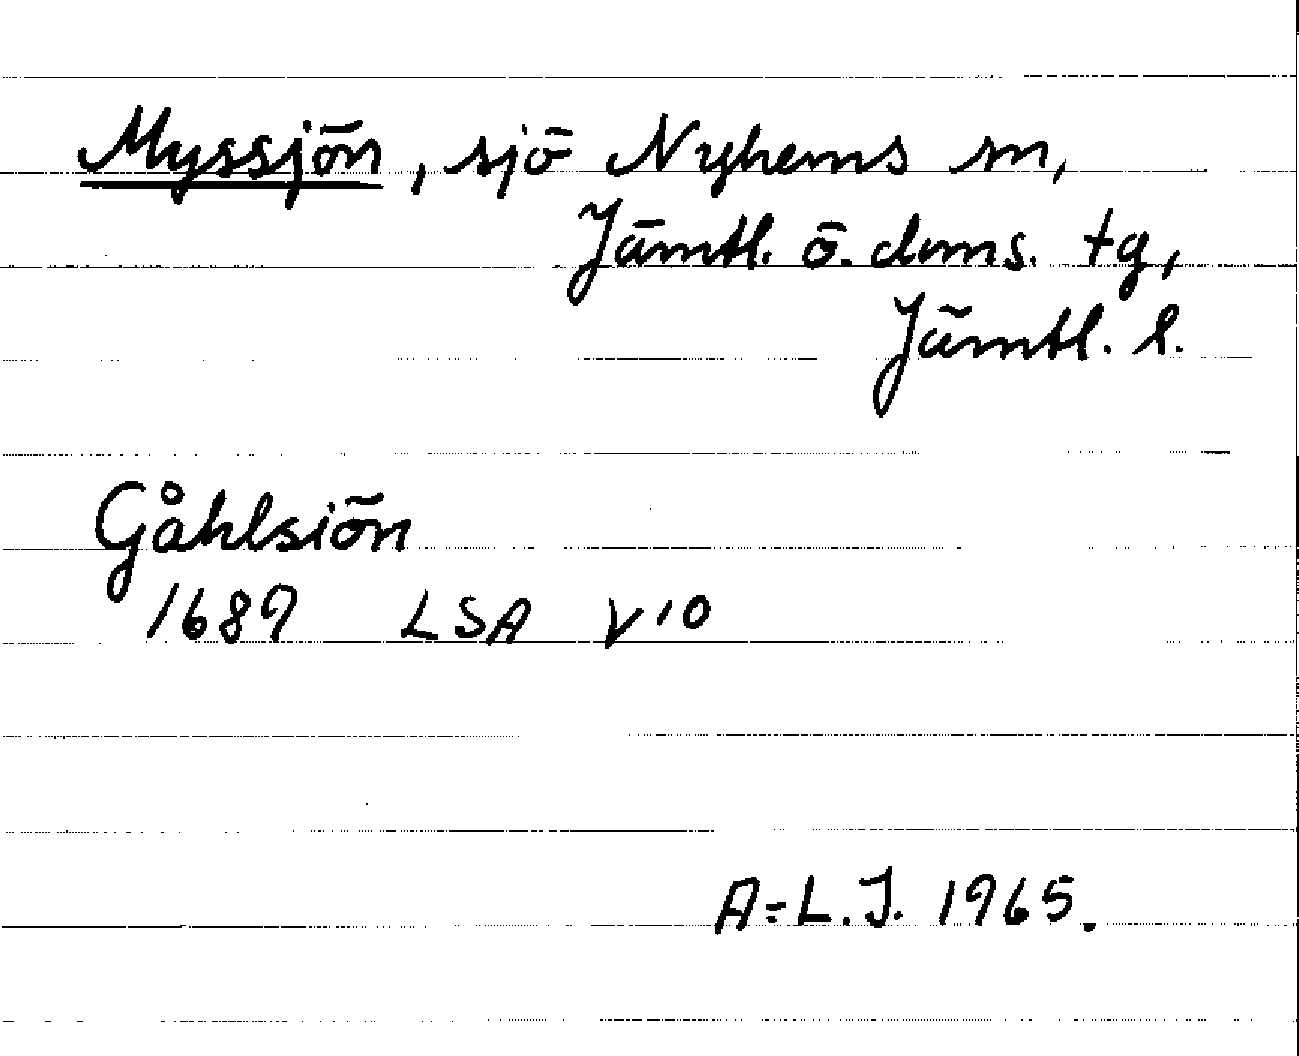 Myssjön, sjö Nyhems sn,
Jämtl. ö. doms. tg,
Jämtl. l.
Gåhlsiön
1689 LSA V10
A=L.J. 1965.